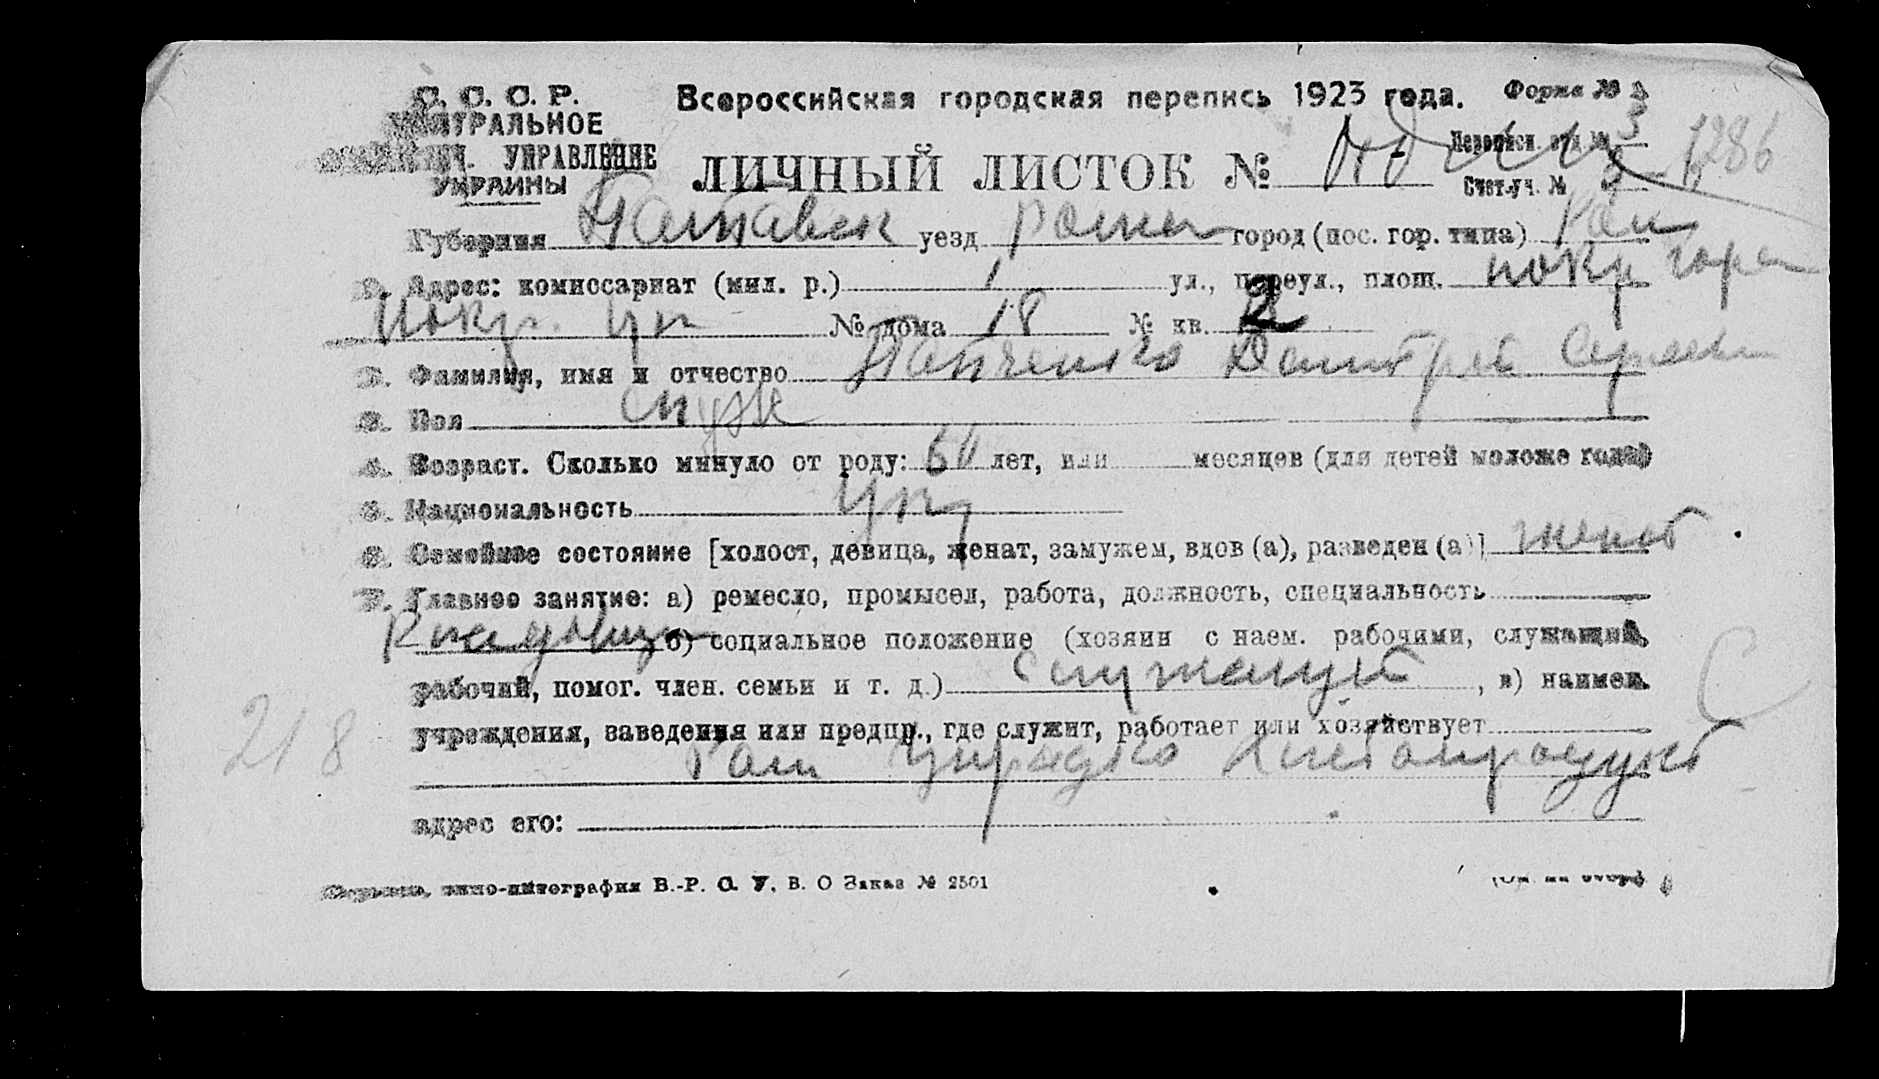 С. С. С. Р.
ЦЕНТРАЛЬНОЕ
УПРАВЛЕНИЕ
УКРАИНЫ
Всероссийская городская перепись 1923 года. Форма № 3
Переписн. отд. № 3
ЛИЧНЫЙ ЛИСТОК №
Счет.уч. № 1286
Губерния Полтавск уезд Ромны город (пос. гор. типа) Ром
1. Адрес: комиссариат (мил. р.) 1 ул., переул., площ. покр гора
Покр. № дома 18 № кв. 2
2. Фамилия, имя и отчество Панченко Дмитрий Сергеев
3. Пол муж
4. Возраст. Сколько минуло от роду: 60 лет, или месяцев (для детей моложе года)
5. Национальность Укр
6. Семейное состояние [холост, девица, женат, замужем, вдов (а), разведен (а)] женат
7. Главное занятие: а) ремесло, промысел, работа, должность, специальность
Кладовщ б) социальное положение (хозяин с наем. рабочими, служащий,
рабочий, помог. член. семьи и т. д.) служащий, в) наимен.
учреждения, заведения или предпр., где служит, работает или хозяйствует
218
Ром
адрес его:
типо-литография В.-Р. С. У. В. О Заказ № 2501